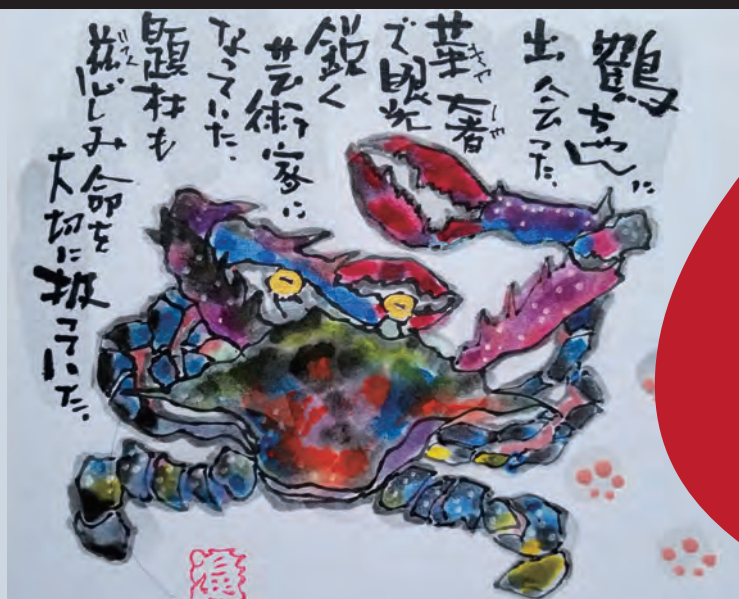 鶴ちゃんに
出会った、
華奢
きゃしゃ
で眼光
鋭く
芸術家に
なっていた、
題材も
慈しみ命を
いつく
大切に扱っていた。